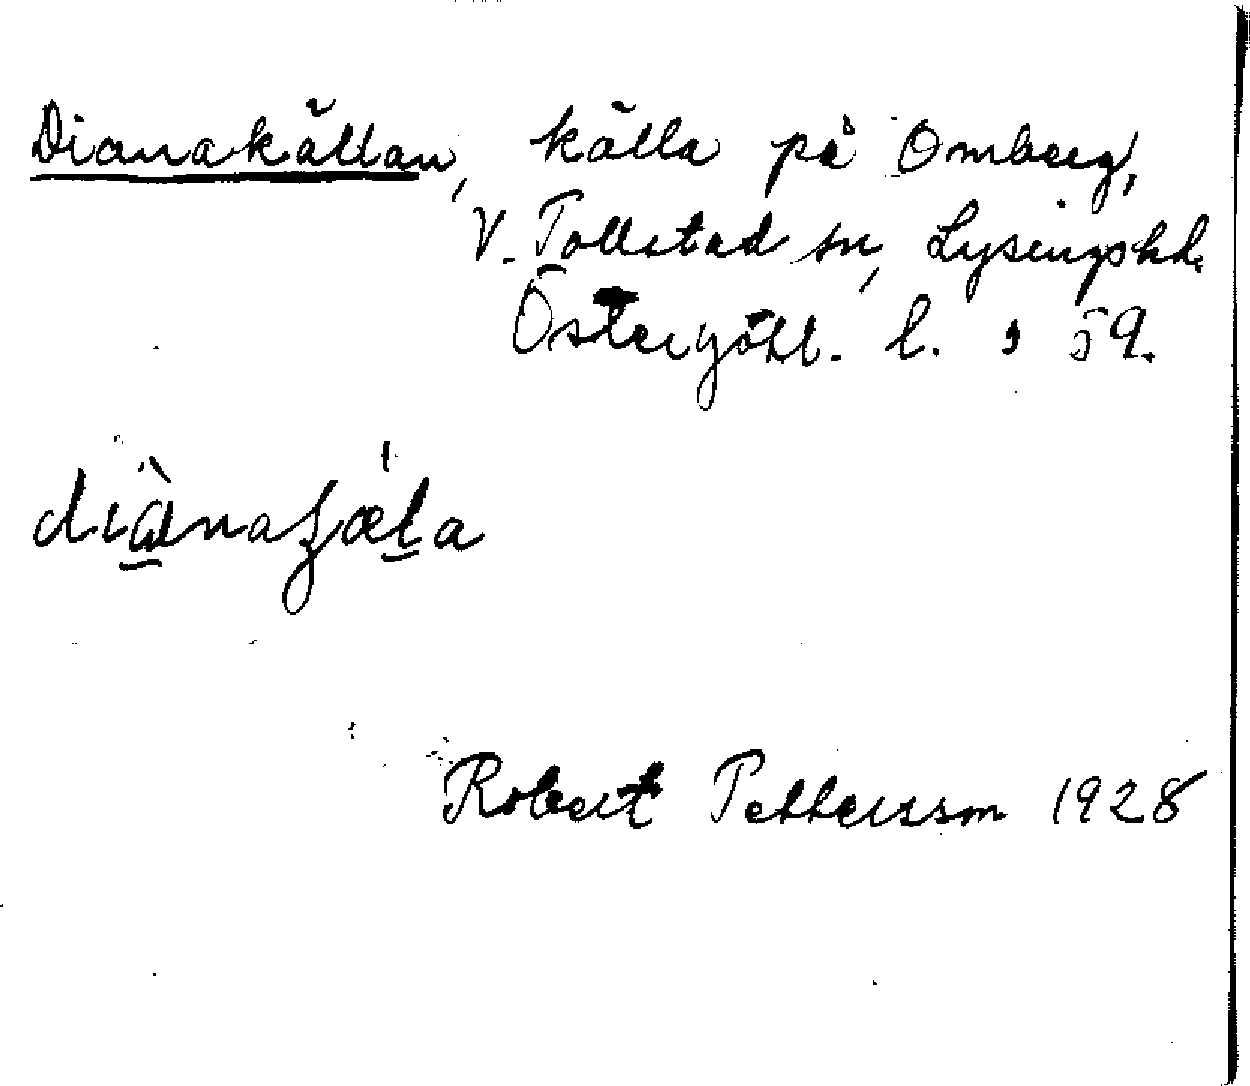 Dianakällan, källa på Omberg,
V. Tollstad sn, Lysingshd.
Östergötl. l. , 59.
Robert Pettersson 1928